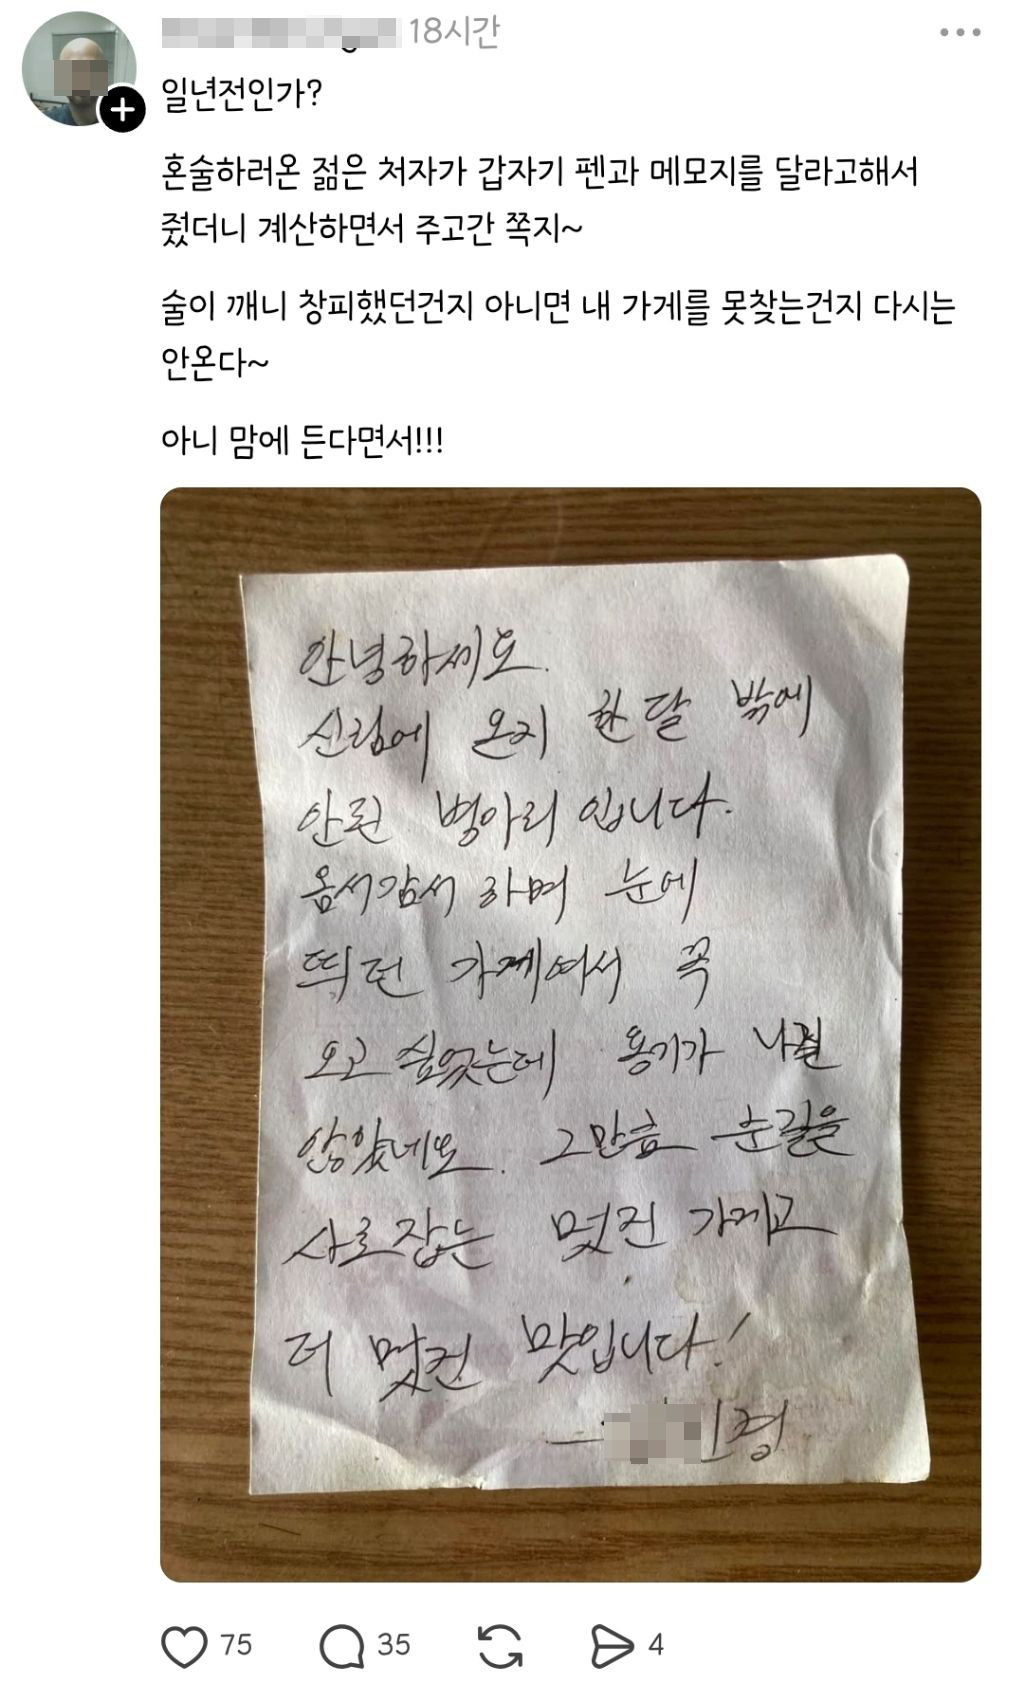 18시간
일년전인가?
혼술하러온 젊은 처자가 갑자기 펜과 메모지를 달라고해서
줬더니 계산하면서 주고간 쪽지~
술이 깨니 창피했던건지 아니면 내 가게를 못찾는건지 다시는
안온다~
아니 맘에 든다면서!!!
안녕하세요.
신림에 온지 한 달 밖에
안된 병아리 입니다.
옴서감서 하며 눈에
띄던 가게여서 꼭
오고 싶었는데 용기가 나질
않았네요. 그만큼 눈길을
사로잡는 멋진 가게고
더 멋진 맛입니다!
75
35
4